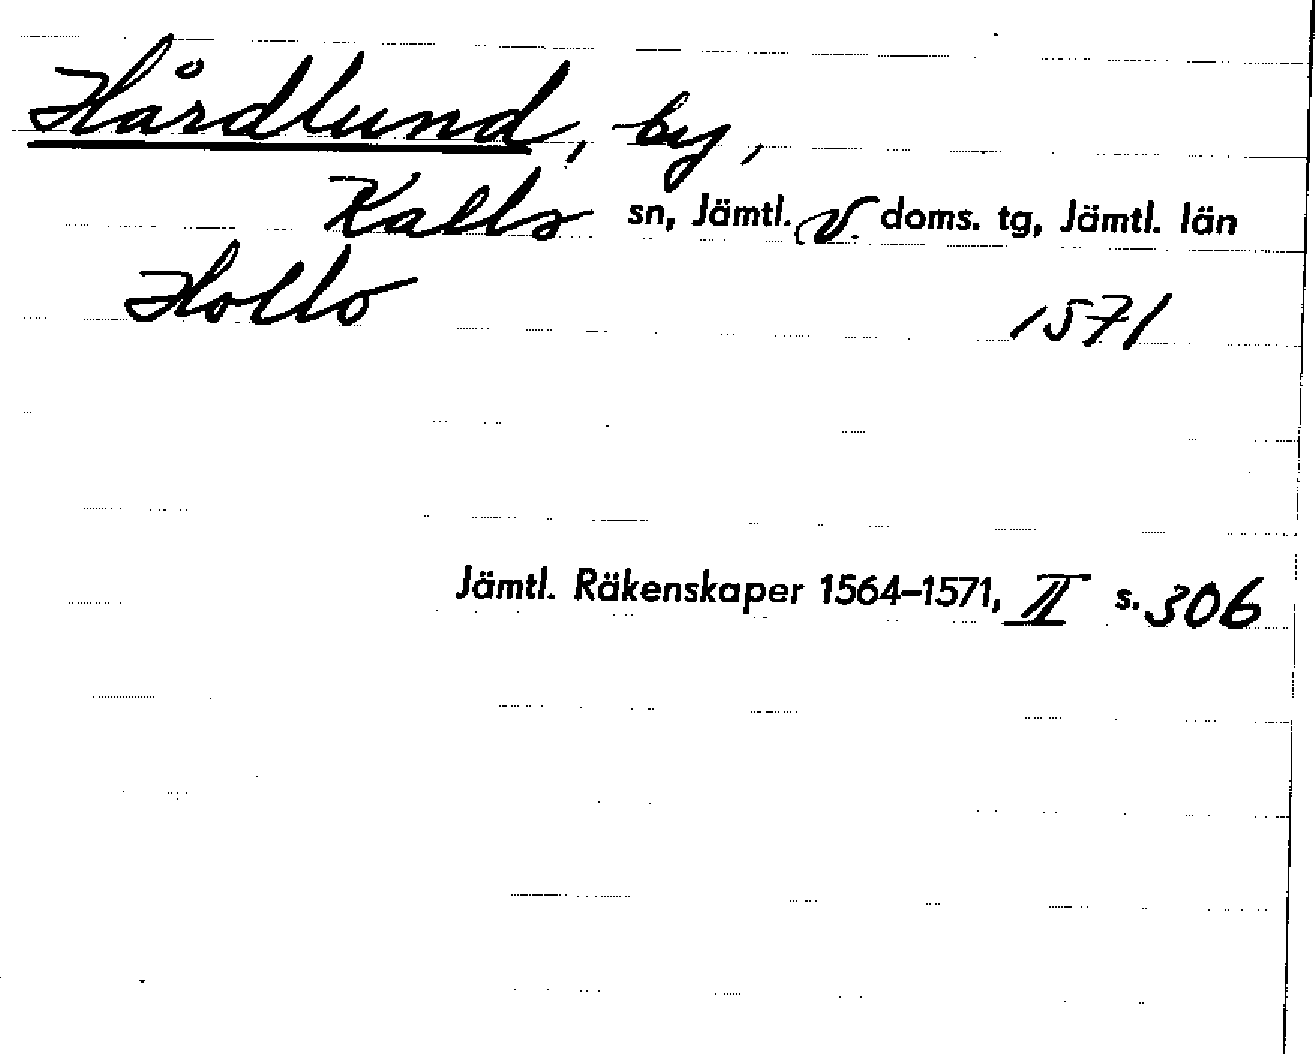 Hårdlund, by,
Kalls sn, Jämtl. v. doms. tg, Jämtl. län
Hollo 1571
Jämtl. Räkenskaper 1564–1571, II s. 306